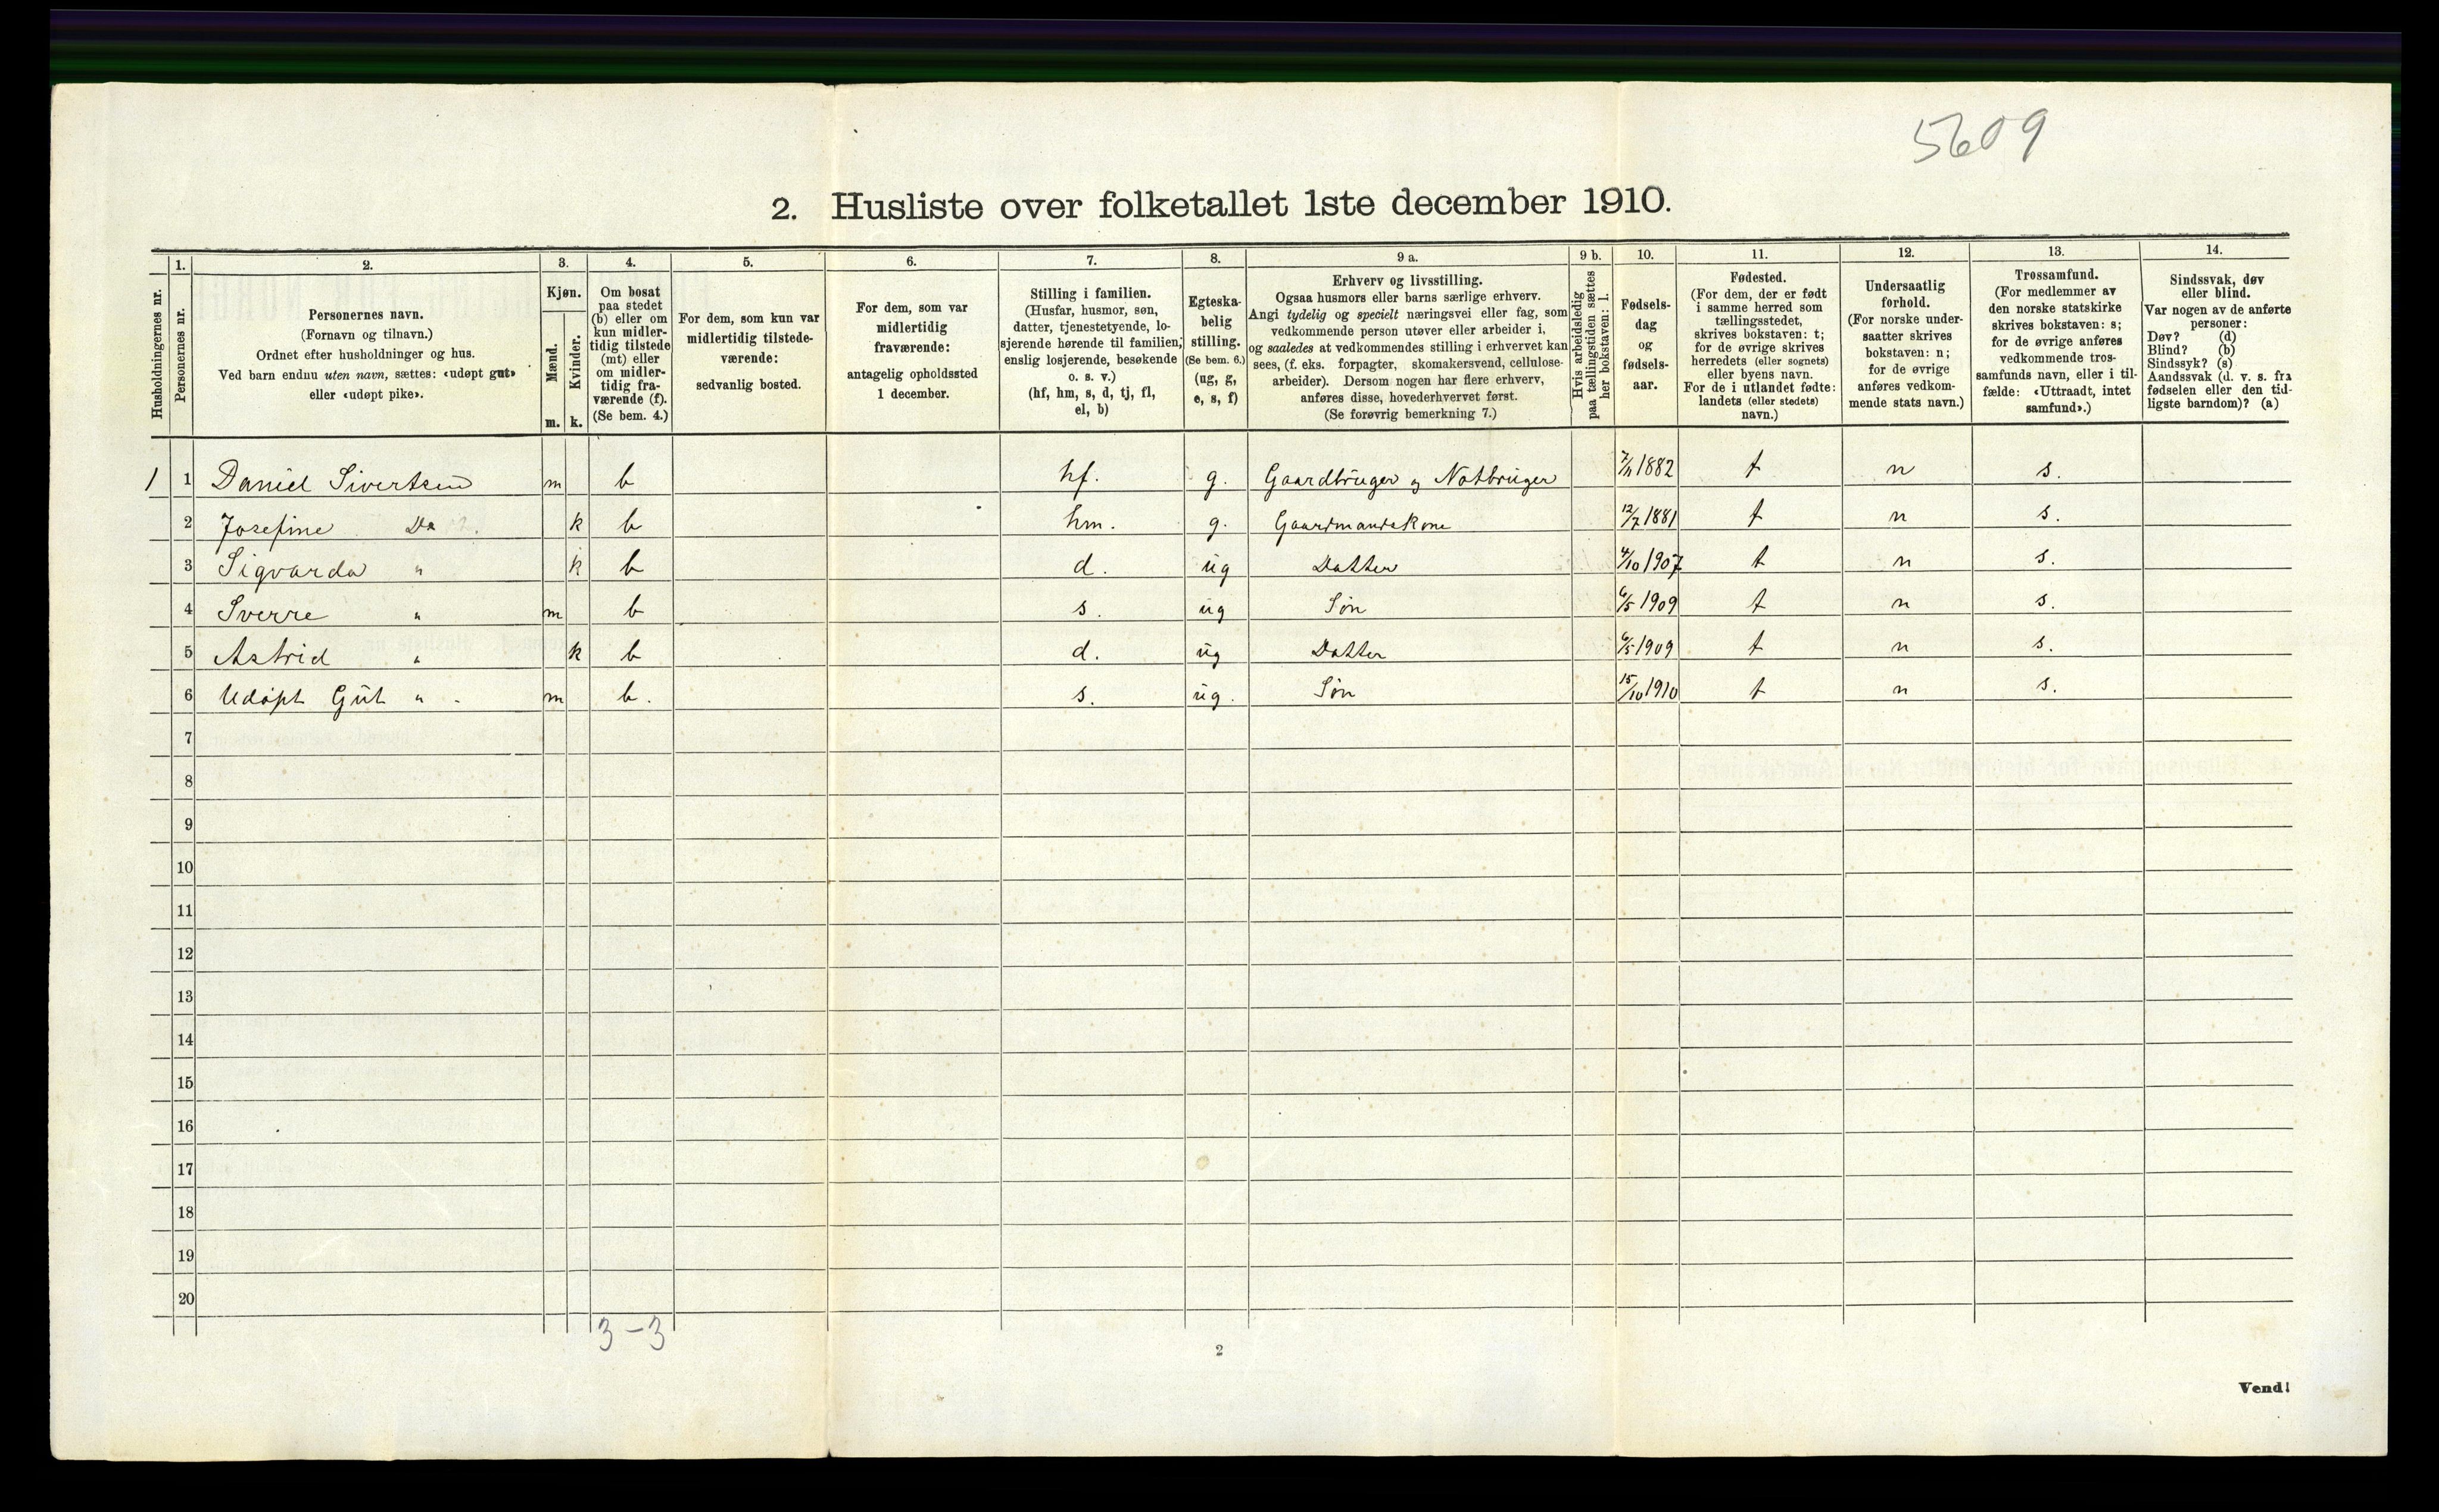 5609
2. Husliste over folketallet 1ste december 1910.
Husholdningernes nr.
1.
Personernes nr.
2.
Personernes navn.
(Fornavn og tilnavn.)
Ordnet efter husholdninger og hus.
Ved barn endnu uten navn, sættes: «udøpt gut»
eller «udøpt pike».
3.
Kjøn.
Mænd.
Kvinder.
m. k.
4.
Om bosat
paa stedet
(b) eller om
kun midler-
tidig tilstede
(mt) eller
om midler-
tidig fra-
værende (f).
(Se bem. 4.)
5.
For dem, som kun var
midlertidig tilstede-
værende:
sedvanlig bosted.
6.
For dem, som var
midlertidig
fraværende:
antagelig opholdssted
1 december.
7.
Stilling i familien.
(Husfar, husmor, søn,
datter, tjenestetyende, lo-
sjerende hørende til familien,
enslig losjerende, besøkende
o. s. v.)
(hf, hm, s, d, tj, fl,
el, b)
8.
Egteska-
belig
stilling.
(Se bem. 6.)
(ug, g,
e, s, f)
9 a.
Erhverv og livsstilling.
Ogsaa husmors eller barns særlige erhverv.
Angi tydelig og specielt næringsvei eller fag, som
vedkommende person utøver eller arbeider i,
og saaledes at vedkommendes stilling i erhvervet kan
sees, (f. eks. forpagter, skomakersvend, cellulose-
arbeider). Dersom nogen har flere erhverv,
anføres disse, hovederhvervet først.
(Se forøvrig bemerkning 7.)
9 b.
Hvis arbeidsledig
paa tællingstiden sættes
her bokstaven: l.
10.
Fødsels-
dag
og
fødsels-
aar.
11.
Fødested.
(For dem, der er født
i samme herred som
tællingsstedet,
skrives bokstaven: t;
for de øvrige skrives
herredets (eller sognets)
eller byens navn.
For de i utlandet fødte:
landets (eller stedets)
navn.)
12.
Undersaatlig
forhold.
(For norske under-
saatter skrives
bokstaven: n;
for de øvrige
anføres vedkom-
mende stats navn.)
13.
Trossamfund.
(For medlemmer av
den norske statskirke
skrives bokstaven: s;
for de øvrige anføres
vedkommende tros-
samfunds navn, eller i til-
fælde: «Uttraadt, intet
samfund».)
14.
Sindssvak, døv
eller blind.
Var nogen av de anførte
personer:
Døv? (d)
Blind? (b)
Sindssyk? (s)
Aandssvak (d. v. s. fra
fødselen eller den tid-
ligste barndom)? (a)
1 1 Daniel Sivertsen m b hf. g. Gaardbruger og Notbruger 1882 t n s.
2 Josefine Do k b hm. g. Gaardmandskone 12/7 1881 t n s.
3 Sigvarda " k b d. ug Datter 4/10 1907 t n s.
4 Sverre " m b s. ug Søn 6/5 1909 t n s.
5 Astrid " k b d. ug Datter 6/5 1909 t n s.
6 Udøpt Gut " m b. s. ug. Søn 15/10 1910 t n s.
7
8
9
10
11
12
13
14
15
16
17
18
19
20
3-3
2
Vend!